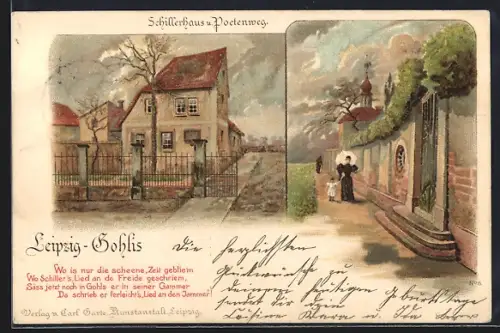 Schillerhaus u. Poetenweg.
Leipzig-Gohlis
Wo is nur die scheene Zeit gebliem
Wo Schiller's Lied an de Freide geschriem,
Säss jetz noch in Gohls er in seiner Gammer
Da schrieb er ferleicht's Lied an den Jammer!
Verlag v. Carl Garte, Kunstanstalt, Leipzig.
Die herzlichsten
Glückwünsche zu
Deinem heutigen Geburtstage
sendet dir dein
u. Ida